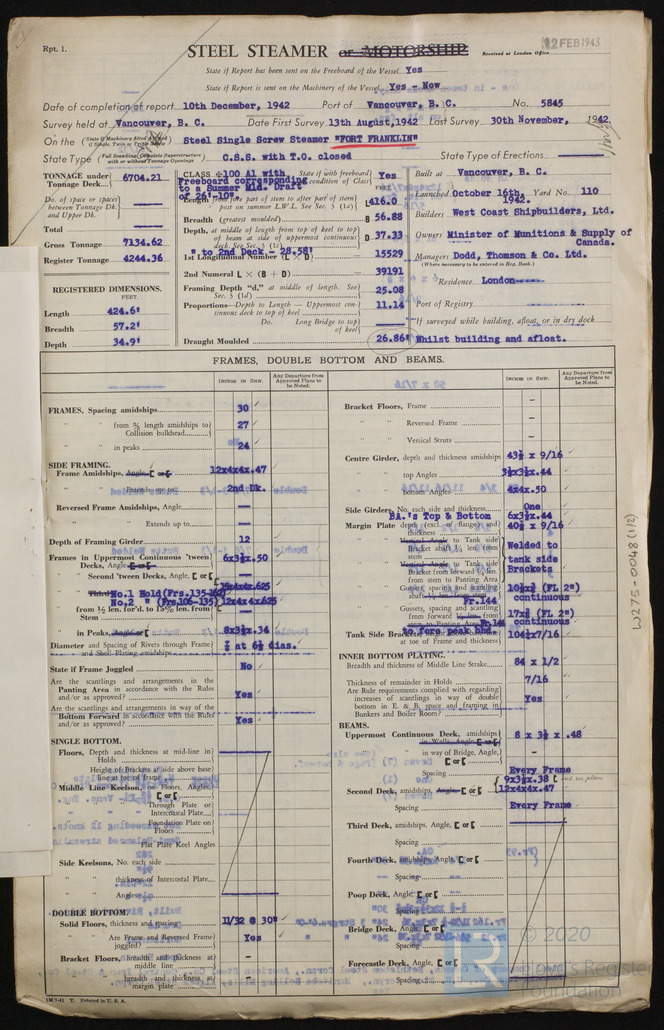 Rpt. 1.
12 FEB 1943
STEEL STEAMER or MOTORSHIP
Received at London Office
State if Report has been sent on the Freeboard of the Vessel Yes
State if Report is sent on the Machinery of the Vessel Yes - Now
Date of completion of report 10th December, 1942 Port of Vancouver, B. C. No. 5845
Survey held at Vancouver, B. C. Date First Survey 13th August, 1942 Last Survey 30th November, 1942
On the (State if Machinery fitted Aft and if Single, Twin or Triple Screw) Steel Single Screw Steamer "FORT FRANKLIN"
State Type (Full Scantling, Complete Superstructure with or without Tonnage Openings) C.S.S. with T.O. closed State Type of Erections
TONNAGE under Tonnage Deck 6704.21
Do. of space or spaces between Tonnage Dk. and Upper Dk.
Total
Gross Tonnage 7134.62
Register Tonnage 4244.36
REGISTERED DIMENSIONS.
FEET.
Length 424.6'
Breadth 57.2'
Depth 34.9'
CLASS 100 A1 with freeboard corresponding to a Summer Mld. Draft of 26'-10"
State if with freeboard condition of Class Yes
Length from fore part of stem to after part of stern post on summer L.W.L. See Sec. 3 (1a) L 416.0
Breadth (greatest moulded) B 56.88
Depth, at middle of length from top of keel to top of beam at side of uppermost continuous deck. See Sec. 3 (1c) D 37.33
" to 2nd Deck - 28.58'
1st Longitudinal Number (L × D) 15529
2nd Numeral L × (B + D) 39191
Framing Depth "d," at middle of length. See Sec. 3 (1d) 25.08
Proportions—Depth to Length—Uppermost continuous deck to top of keel 11.14
Do. Long Bridge to top of keel
Draught Moulded 26.86'
Built at Vancouver, B. C.
Launched October 16th, 1942. Yard No. 110
Builders West Coast Shipbuilders, Ltd.
Owners Minister of Munitions & Supply of Canada.
Managers Dodd, Thomson & Co. Ltd.
(Where necessary to be entered in Reg. Book.)
Residence London
Port of Registry
If surveyed while building, afloat, or in dry dock
Whilst building and afloat.
FRAMES, DOUBLE BOTTOM AND BEAMS.
INCHES IN SHIP.
Any Departure from Approved Plans to be Noted.
INCHES IN SHIP.
Any Departure from Approved Plans to be Noted.
FRAMES, Spacing amidships 30
" " from ⅗ length amidships to Collision bulkhead 27
" " in peaks 24
SIDE FRAMING.
Frame Amidships, Angle [ or [ 12x4x4x.47
" " Extends up to 2nd Dk.
Reversed Frame Amidships, Angle
" " Extends up to
Depth of Framing Girder 12
Frames in Uppermost Continuous 'tween Decks, Angle [ or [ 6x3½x.50
" Second 'tween Decks, Angle, [ or [
" Third No.1 Hold (Frs.135-162) 15x4x4x.625
No.2 " (Frs.106-135) 12x4x4x.625
" from ½ len. for'd. to 15% len. from Stem
" in Peaks, Angle or [ 8x3½x.34
Diameter and Spacing of Rivets through Frame and Shell Plating amidships ⅞ at 6½ dias.
State if Frame Joggled No
Are the scantlings and arrangements in the Panting Area in accordance with the Rules and/or as approved? Yes
Are the scantlings and arrangements in way of the Bottom Forward in accordance with the Rules and/or as approved? Yes
SINGLE BOTTOM.
Floors, Depth and thickness at mid-line in Holds
Height of Brackets at side above base line at toe of frame
Middle Line Keelson, on Floors, Angles, [ or [
" " Through Plate or Intercostal Plate
" " Foundation Plate on Floors
" " Flat Plate Keel Angles
Side Keelsons, No. each side
" " thickness of Intercostal Plate
" " Angles
DOUBLE BOTTOM.
Solid Floors, thickness and spacing 11/32 @ 30"
" " Are Frame and Reversed Frame joggled? Yes
Bracket Floors, breadth and thickness at middle line -
" " breadth and thickness at margin plate -
Bracket Floors, Frame -
" " Reversed Frame -
" " Vertical Struts -
Centre Girder, depth and thickness amidships 43½ x 9/16
" " top Angles 3½x3½x.44
" " bottom Angles 4x4x.50
Side Girders, No. each side and thickness One
BA.'s Top & Bottom 6x3½x.44
Margin Plate depth (excl. of flange) and thickness 40½ x 9/16
" " Vertical Angle to Tank side Bracket abaft ¼ len. from stem
Welded to tank side Brackets
" " Vertical Angle to Tank side Bracket from forward ¼ len. from stem to Panting Area
" " Gussets, spacing and scantling abaft ¼ len. from stem Fr.144 10½x½ (FL 2") continuous
" " Gussets, spacing and scantling from forward ¼ len. from stem to Panting Area Fr.144 to fore peak bhd. 17x½ (FL 2") continuous
Tank Side Brackets at toe of Frame and thickness 104½x7/16
INNER BOTTOM PLATING.
Breadth and thickness of Middle Line Strake 84 x 1/2
Thickness of remainder in Holds 7/16
Are Rule requirements complied with regarding increases of scantlings in way of double bottom in E. & B. space and framing in Bunkers and Boiler Room? Yes
BEAMS.
Uppermost Continuous Deck, amidships in Wells, Angle [ or [ 8 x 3½ x .48
" " in way of Bridge, Angle, [ or [
Spacing Every Frame
Second Deck, amidships, Angle, [ or [ 9x3½x.38
12x4x4x.47
Spacing Every Frame
Third Deck, amidships, Angle, [ or [
Spacing
Fourth Deck, amidships, Angle, [ or [
Spacing
Poop Deck, Angle, [ or [
Spacing
Bridge Deck, Angle, [ or [
Spacing
Forecastle Deck, Angle, [ or [
Spacing
1M 7-41 T. Printed in U. S. A.
W275-0048 (1/2)
© 2020
Lloyd's Register Foundation